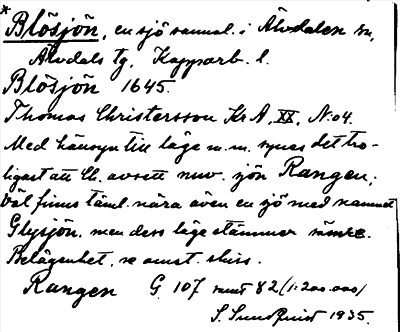 * Blösjön, en sjö samml. i Älvdalen sn,
Älvdals tg, Kopparb. l.
Blösjön 1645.
Thomas Christersson KrA, XX, N:o 4.
Med hänsyn till läge m. m. synes det tro-
ligast att Ch. avsett nuv. sjön Rangen;
väl finns täml. nära även en sjö med namnet
Glysjön, men dess läge stämmer sämre.
Belägenhet, se omst. skiss.
Rangen G. 107 82 (1:200.000)
S. Sundquist 1935.